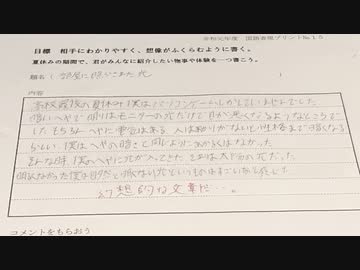 令和元年度 国語表現プリントNo.15
目標 相手にわかりやすく、想像がふくらむように書く。
夏休みの期間で、君がみんなに紹介したい物事や体験を一つ書こう。
題名(部屋に限りこまた光)
内容
高校最後の夏休み僕はパソコンゲームしかしていませんでした
暗いへやで明りはモニターの光だけで目が悪くなるようなところで
した もちろんへやに電気はある 人は明りがないと性格まで暗くなる
らしい 僕はへやの暗さと同じように気が良くはなかった
そんな時 僕のへやに光が入ってきた それは太陽の光だった
明るくなかった僕は日がたち眩しない光というものはすごいなと感じた
幻想的な文章だ…。
コメントをもらおう